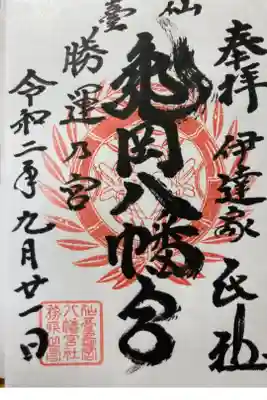 奉拝
伊達家氏社
仙臺
亀岡八幡宮
勝運乃宮
令和二年九月廿一日
仙臺亀岡
八幡宮社